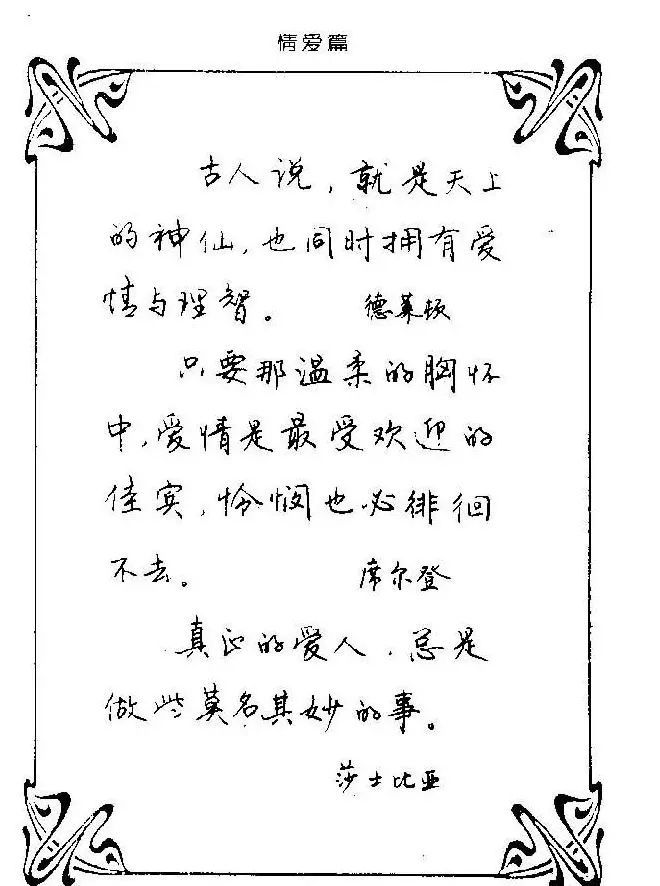 情爱篇
古人说，就是天上
的神仙，也同时拥有爱
情与理智。 德莱顿
只要那温柔的胸怀
中，爱情是最受欢迎的
佳宾，怜悯也必徘徊
不去。 席尔登
真正的爱人，总是
做些莫名其妙的事。
莎士比亚